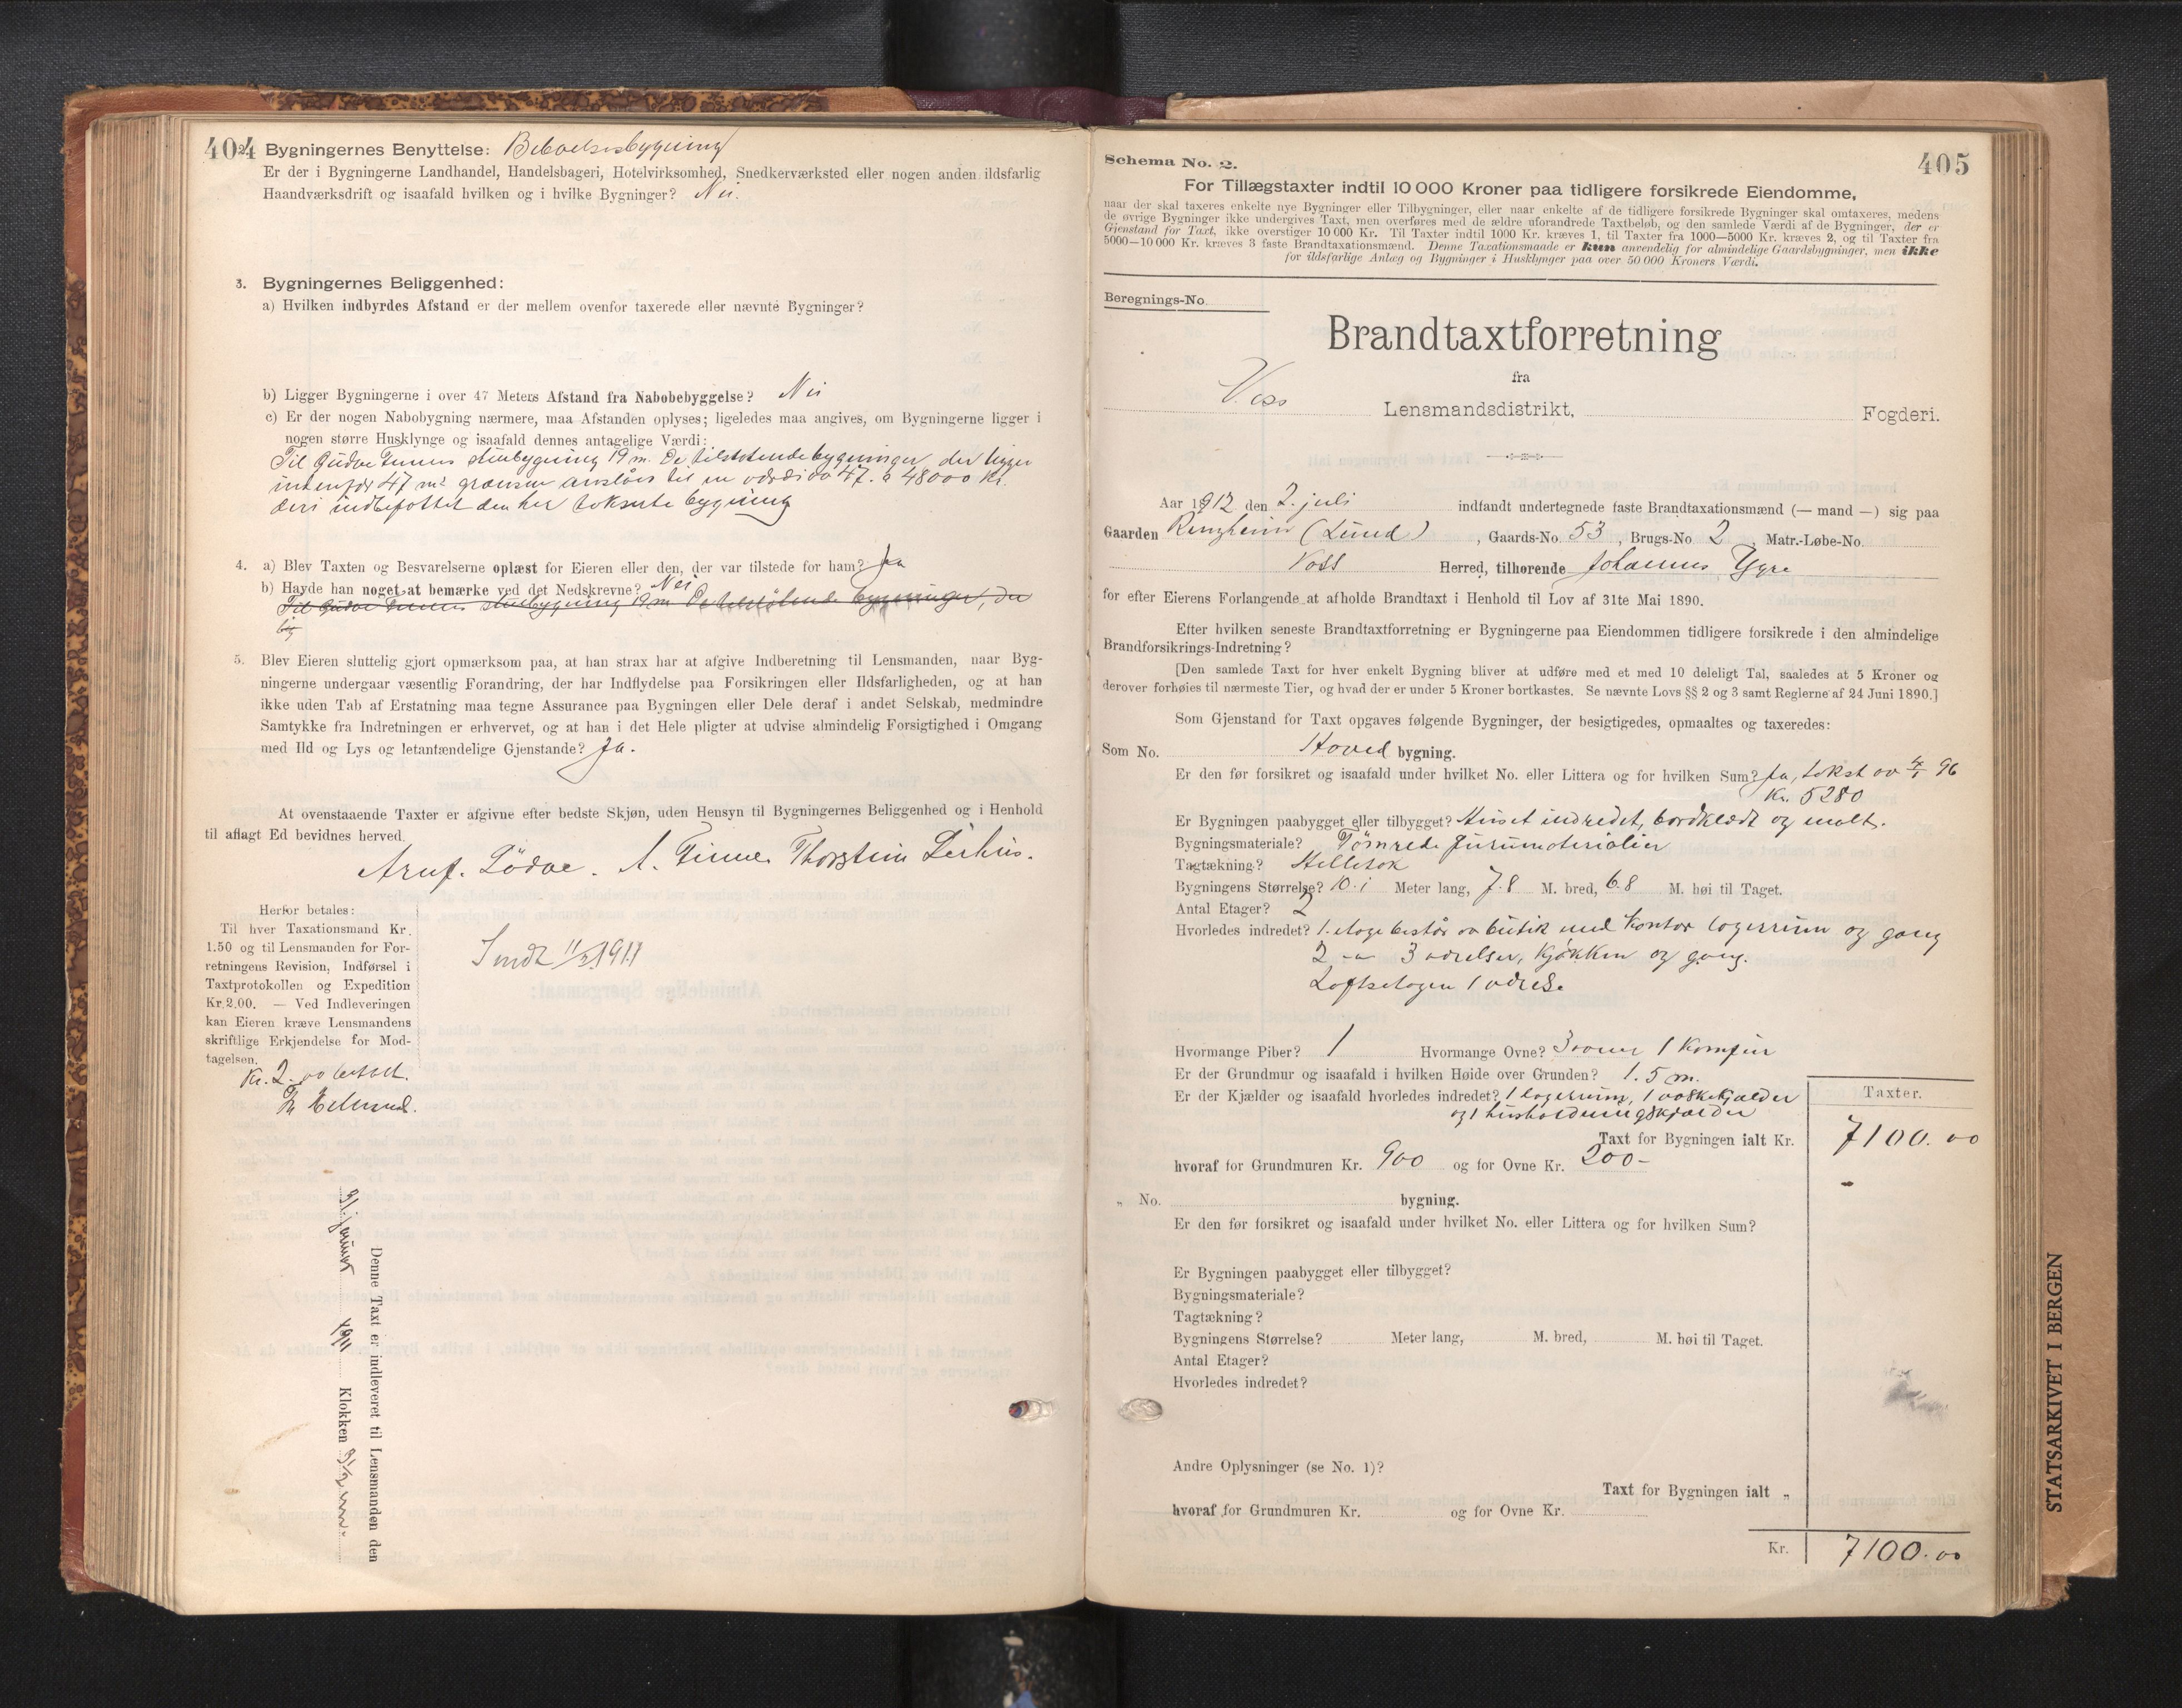 404 Bygningernes Benyttelse: Beboelsesbygning
Er der i Bygningerne Landhandel, Handelsbageri, Hotelvirksomhed, Snedkerværksted eller nogen anden ildsfarlig
Haandværksdrift og isaafald hvilken og i hvilke Bygninger? Nei.
3. Bygningernes Beliggenhed:
a) Hvilken indbyrdes Afstand er der mellem ovenfor taxerede eller nævnte Bygninger?
b) Ligger Bygningerne i over 47 Meters Afstand fra Nabobebyggelse? Nei
c) Er der nogen Nabobygning nærmere, maa Afstanden oplyses; ligeledes maa angives, om Bygningerne ligger i
nogen større Husklynge og isaafald dennes antagelige Værdi:
Til Gudve Finnes stuebygning 19 m. De tilstøtende bygninger, der ligger
indenfor 47 m. grænsen anslåes til en værdi av 47. à 48000 Kr.
deri indbefattet den her takserte bygning
4. a) Blev Taxten og Besvarelserne oplæst for Eieren eller den, der var tilstede for ham? Ja
b) Havde han noget at bemærke ved det Nedskrevne? Nei
Til Gudve Finnes stuebygning 19 m De tilstøtende bygninger, der
lig
5. Blev Eieren sluttelig gjort opmærksom paa, at han strax har at afgive Indberetning til Lensmanden, naar Byg-
ningerne undergaar væsentlig Forandring, der har Indflydelse paa Forsikringen eller Ildsfarligheden, og at han
ikke uden Tab af Erstatning maa tegne Assurance paa Bygningen eller Dele deraf i andet Selskab, medmindre
Samtykke fra Indretningen er erhvervet, og at han i det Hele pligter at udvise almindelig Forsigtighed i Omgang
med Ild og Lys og letantændelige Gjenstande? Ja.
At ovenstaaende Taxter er afgivne efter bedste Skjøn, uden Hensyn til Bygningernes Beliggenhed og i Henhold
til aflagt Ed bevidnes herved.
A. Finne. Thorstein
Herfor betales:
Til hver Taxationsmand Kr.
1.50 og til Lensmanden for For-
retningens Revision, Indførsel i
Taxtprotokollen og Expedition
Kr. 2.00. — Ved Indleveringen
kan Eieren kræve Lensmandens
skriftlige Erkjendelse for Mod-
tagelsen.
Kr. 2.00 betalt.
Sendt 11/2 1911
Denne Taxt er indleveret til Lensmanden den
31. januar 1911 Klokken 3 1/2 em.
Schema No. 2.
405
For Tillægstaxter indtil 10 000 Kroner paa tidligere forsikrede Eiendomme,
naar der skal taxeres enkelte nye Bygninger eller Tilbygninger, eller naar enkelte af de tidligere forsikrede Bygninger skal omtaxeres, medens
de øvrige Bygninger ikke undergives Taxt, men overføres med de ældre uforandrede Taxtbeløb, og den samlede Værdi af de Bygninger, der er
Gjenstand for Taxt, ikke overstiger 10 000 Kr. Til Taxter indtil 1000 Kr. kræves 1, til Taxter fra 1000—5000 Kr. kræves 2, og til Taxter fra
5000—10 000 Kr. kræves 3 faste Brandtaxationsmænd. Denne Taxationsmaade er kun anvendelig for almindelige Gaardsbygninger, men ikke
for ildsfarlige Anlæg og Bygninger i Husklynger paa over 50 000 Kroners Værdi.
Beregnings-No.
Brandtaxtforretning
fra
Voss Lensmandsdistrikt, Fogderi.
Aar 1912 den 2. juli indfandt undertegnede faste Brandtaxationsmænd (— mand —) sig paa
Gaarden Ringheim (Lund), Gaards-No. 53, Brugs-No 2, Matr.-Løbe-No.
Voss Herred, tilhørende Johannes Ygre
for efter Eierens Forlangende at afholde Brandtaxt i Henhold til Lov af 31te Mai 1890.
Efter hvilken seneste Brandtaxtforretning er Bygningerne paa Eiendommen tidligere forsikrede i den almindelige
Brandforsikrings-Indretning?
[Den samlede Taxt for hver enkelt Bygning bliver at udføre med et med 10 deleligt Tal, saaledes at 5 Kroner og
derover forhøies til nærmeste Tier, og hvad der er under 5 Kroner bortkastes. Se nævnte Lovs §§ 2 og 3 samt Reglerne af 24 Juni 1890.]
Som Gjenstand for Taxt opgaves følgende Bygninger, der besigtigedes, opmaaltes og taxeredes:
Som No. Hoved bygning.
Er den før forsikret og isaafald under hvilket No. eller Littera og for hvilken Sum? Ja, takst av 96
Kr. 5280
Er Bygningen paabygget eller tilbygget? Huset indredet, bordklædt og malt.
Bygningsmateriale? Tømrede furumaterialier
Tagtækning? Helletak
Bygningens Størrelse? 10.1 Meter lang, 7.8 M. bred, 6.8 M. høi til Taget.
Antal Etager? 2
Hvorledes indredet? 1. etage består av butik med kontor lagerrum og gang
2 — 3 værelser, kjøkken og gang.
Loftsetagen 1 værelse
Hvormange Piber? 1 Hvormange Ovne? 3 ovne 1 komfur
Er der Grundmur og isaafald i hvilken Høide over Grunden? 1.5 m.
Er der Kjælder og isaafald hvorledes indredet? 1 lagerrum, 1 vaskekjælder
og 1 husholdningskjælder
Taxter.
Taxt for Bygningen ialt Kr. 7100.00
hvoraf for Grundmuren Kr. 900 og for Ovne Kr. 200-
„ No. bygning.
Er den før forsikret og isaafald under hvilket No. eller Littera og for hvilken Sum?
Er Bygningen paabygget eller tilbygget?
Bygningsmateriale?
Tagtækning?
Bygningens Størrelse? Meter lang, M. bred, M. høi til Taget.
Antal Etager?
Hvorledes indredet?
Andre Oplysninger (se No. 1)?
Taxt for Bygningen ialt „
hvoraf for Grundmuren Kr. og for Ovne Kr.
Kr. 7100.00
STATSARKIVET I BERGEN